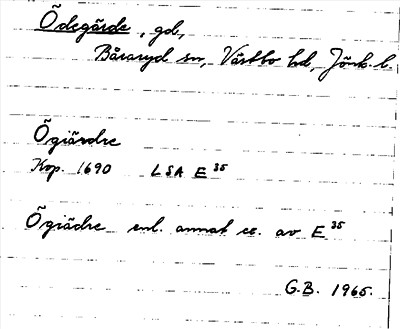 Ödegärde, gd,
Båraryd sn, Västbo hd, Jönk. l.
Ögiärdre
Kop. 1690 LSA E 35
Ögiädre enl. annat ex. av E 35
G.B. 1965.